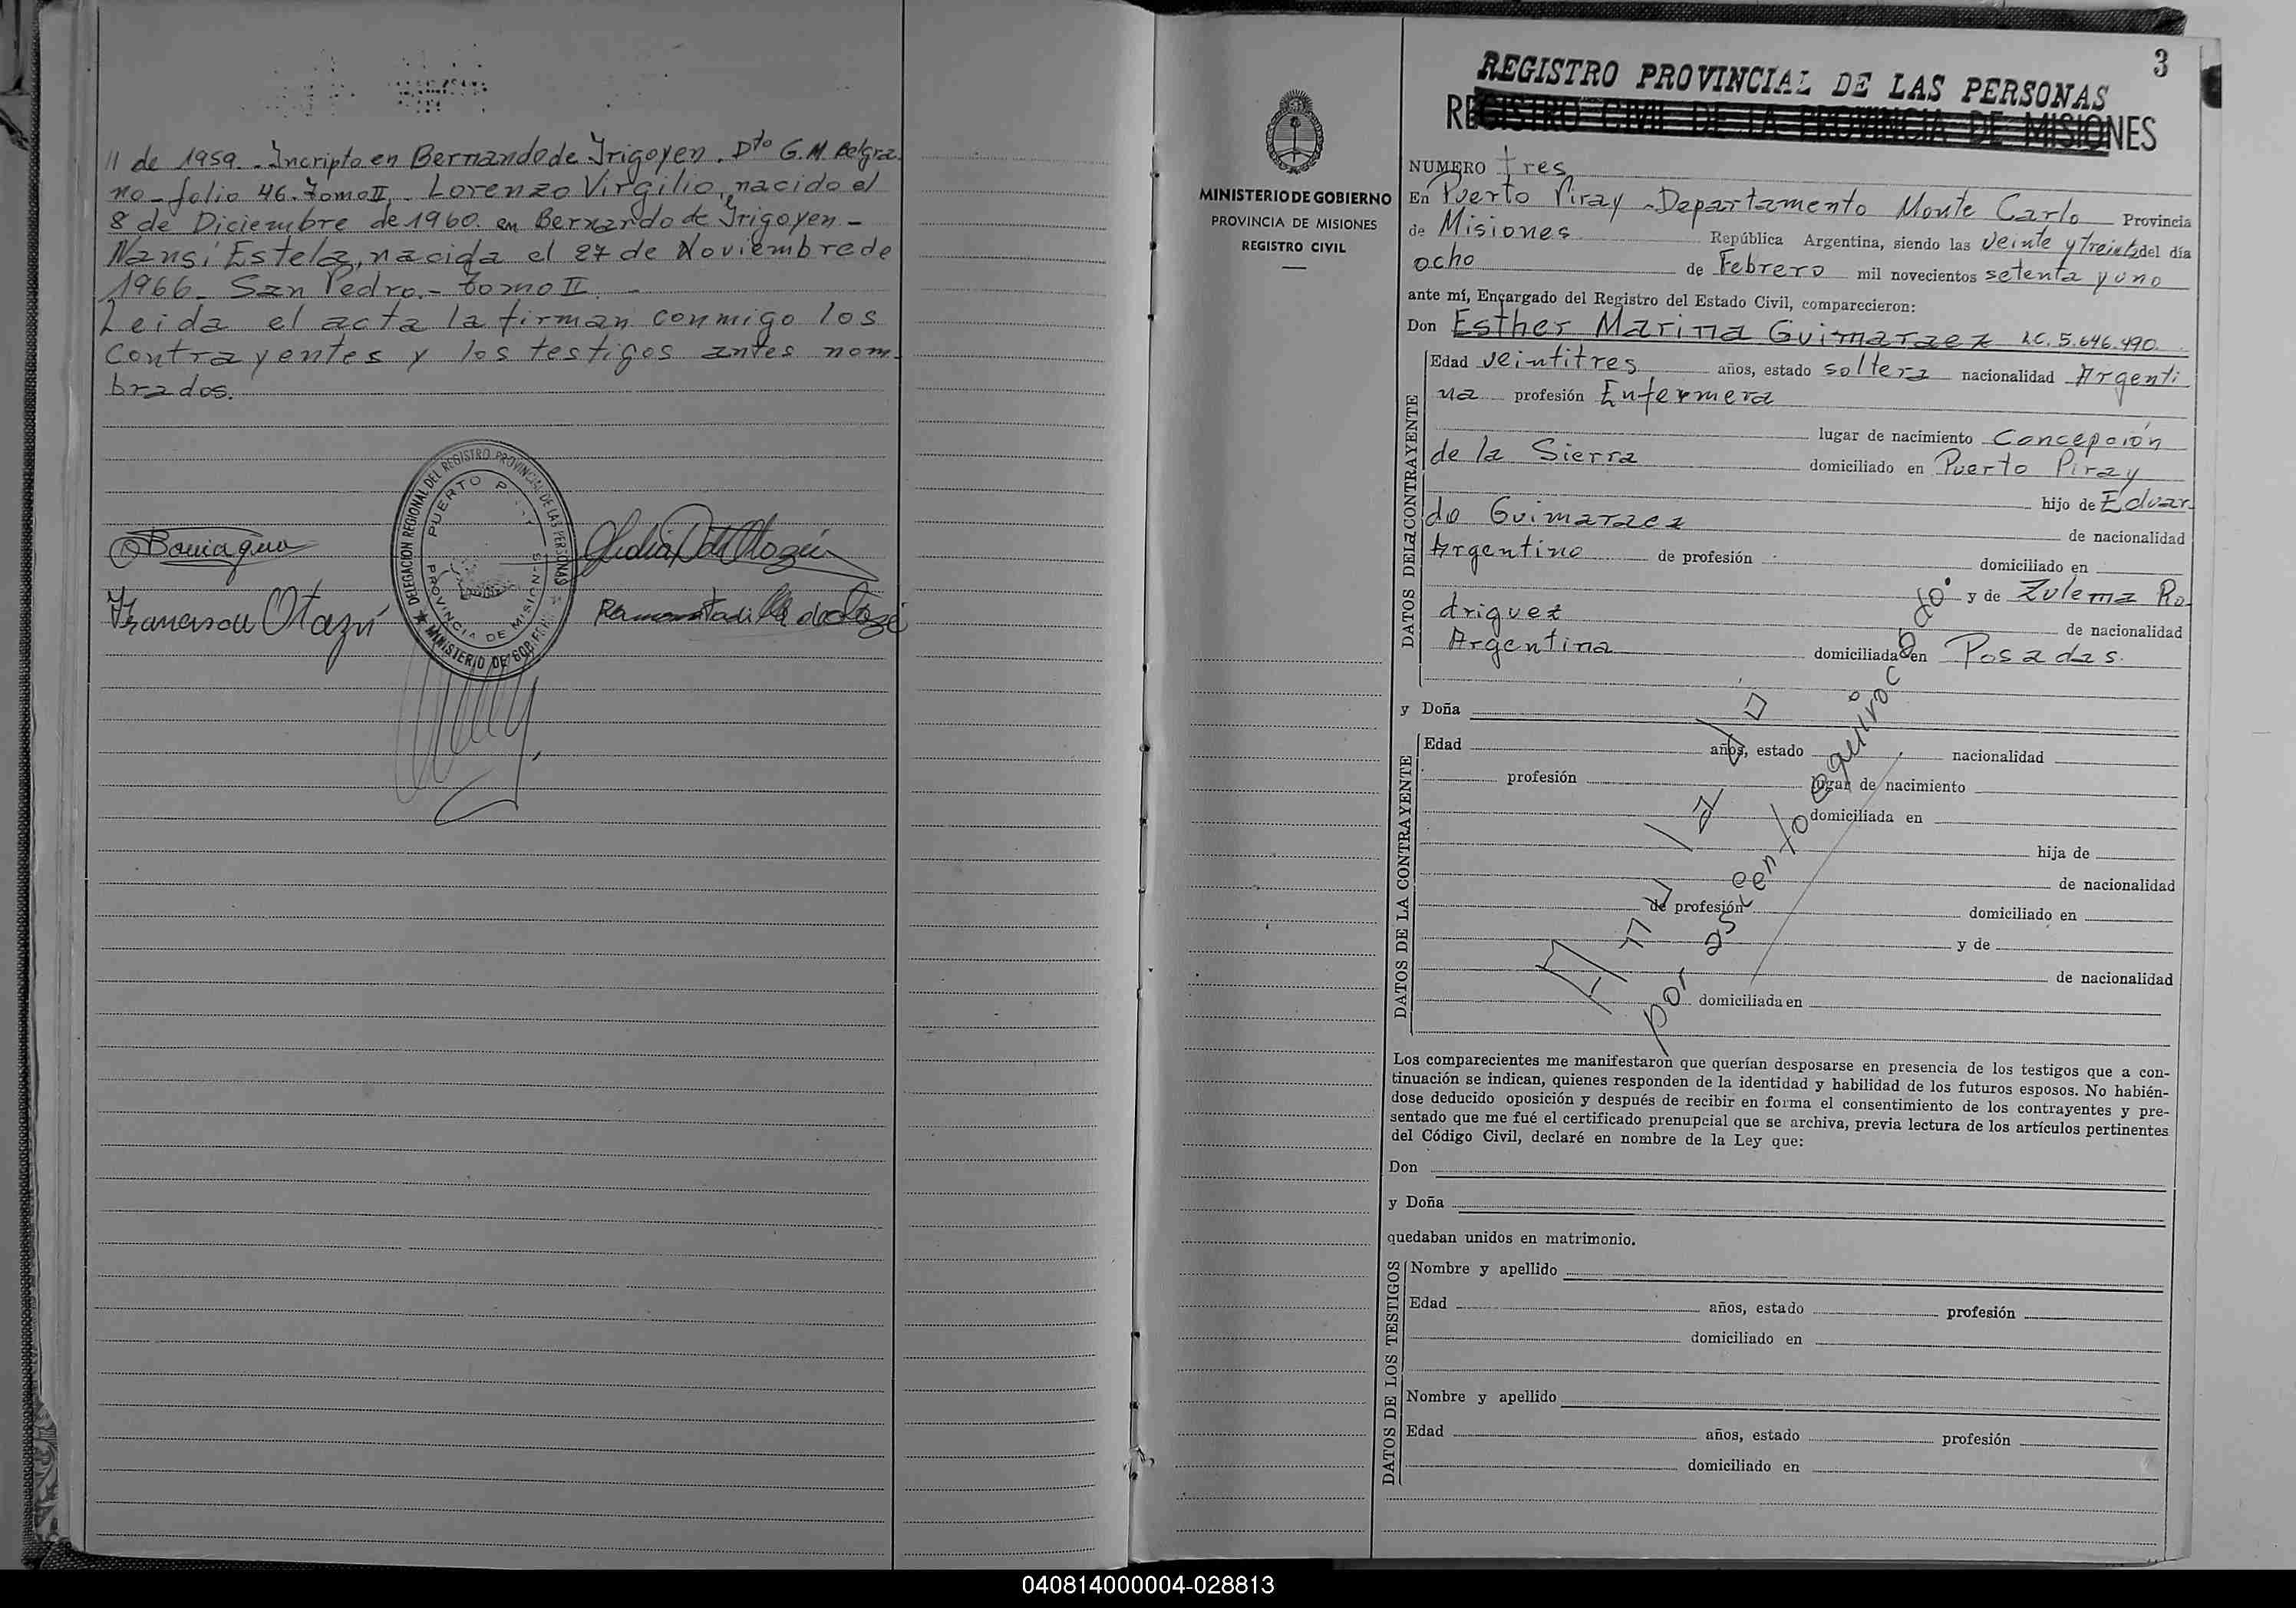 11 de 1959.- Incripto en Bernardo de Irigoyen. Dto G.M. Belgra
no - folio 46. Tomo II.- Lorenzo Virgilio, nacido el
8 de Diciembre de 1960. en Bernardo de Irigoyen -
Nansi Estela, nacida el 27 de Noviembre de
1966- San Pedro.- tomo II. -
Leida el acta la firman conmigo los
contrayentes y los testigos antes nom-
brados.
DELEGACION REGIONAL DEL REGISTRO PROVINCIAL DE LAS PERSONAS
PUERTO
PROVINCIA DE MISIONES
MINISTERIO DE GOBIERNO
Francisca Otazú
3
REGISTRO PROVINCIAL DE LAS PERSONAS
REGISTRO CIVIL DE LA PROVINCIA DE MISIONES
MINISTERIO DE GOBIERNO
PROVINCIA DE MISIONES
REGISTRO CIVIL
NUMERO tres
En Puerto Piray - Departamento Monte Carlo Provincia
de Misiones República Argentina, siendo las veinte y treinta del día
ocho de Febrero mil novecientos setenta y uno
ante mí, Encargado del Registro del Estado Civil, comparecieron:
Don Esther Marina Guimaraez L.C. 5.646.490.
DATOS DE LA CONTRAYENTE
Edad veintitres años, estado soltera nacionalidad Argenti
na profesión Enfermera
lugar de nacimiento Concepción
de la Sierra domiciliado en Puerto Piray
hijo de Eduar-
do Guimaraez de nacionalidad
Argentino de profesión domiciliado en
y de Zulema Ro-
driguez de nacionalidad
Argentina domiciliada en Posadas.
y Doña
DATOS DE LA CONTRAYENTE
Edad años, estado nacionalidad
profesión lugar de nacimiento
domiciliada en
hija de
de nacionalidad
de profesión domiciliado en
y de
de nacionalidad
domiciliada en
Anulado
por asiento equivocado.
Los comparecientes me manifestaron que querían desposarse en presencia de los testigos que a con-
tinuación se indican, quienes responden de la identidad y habilidad de los futuros esposos. No habién-
dose deducido oposición y después de recibir en forma el consentimiento de los contrayentes y pre-
sentado que me fué el certificado prenupcial que se archiva, previa lectura de los artículos pertinentes
del Código Civil, declaré en nombre de la Ley que:
Don
y Doña
quedaban unidos en matrimonio.
DATOS DE LOS TESTIGOS
Nombre y apellido
Edad años, estado profesión
domiciliado en
Nombre y apellido
Edad años, estado profesión
domiciliado en
040814000004-028813